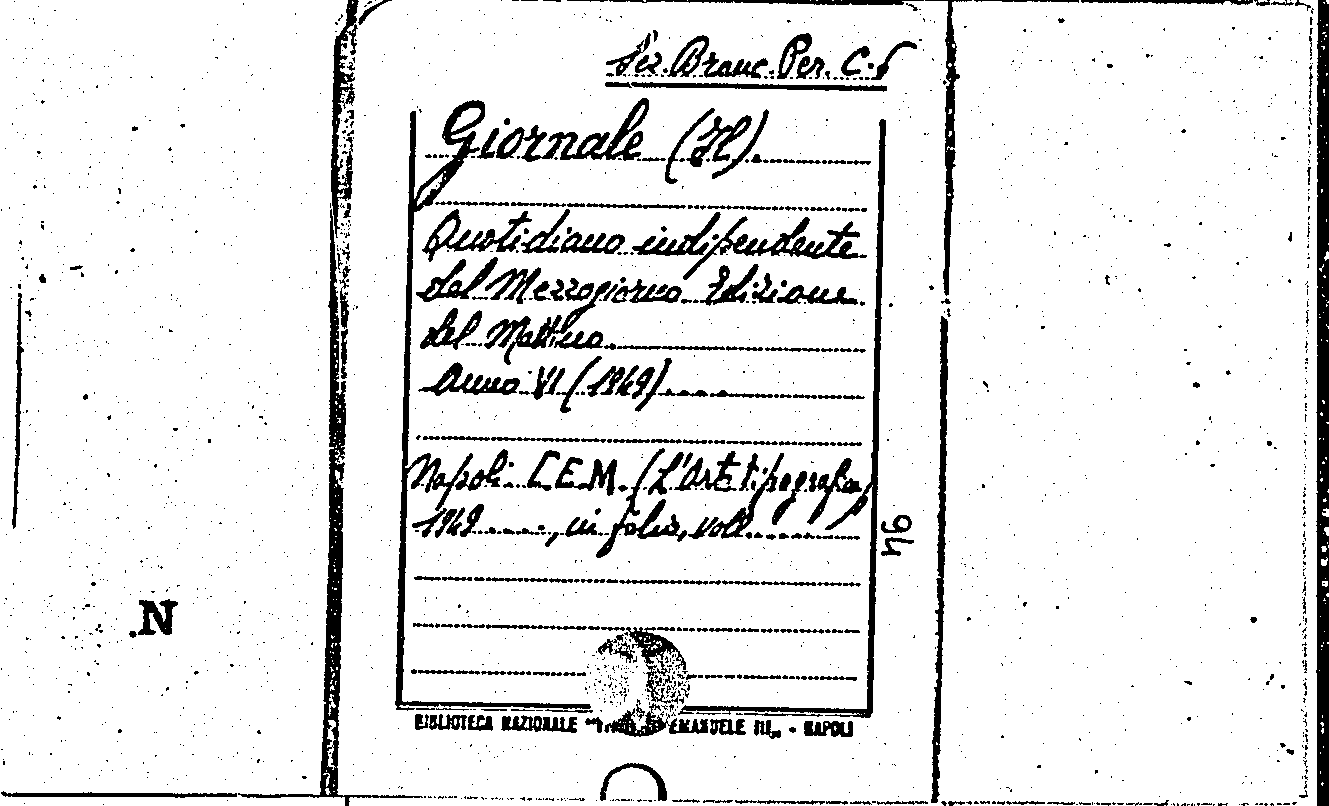 Sez. Branc. Per. C.
Giornale (Il).
Quotidiano indipendente
del Mezzogiorno Edizione
del Mattino.
Anno VI (1949).....
Napoli. C.E.M. (L'Arte tipografica,)
1949 ....., in folio, voll.......
94
.N
BIBLIOTECA NAZIONALE " EMANUELE III„ - NAPOLI